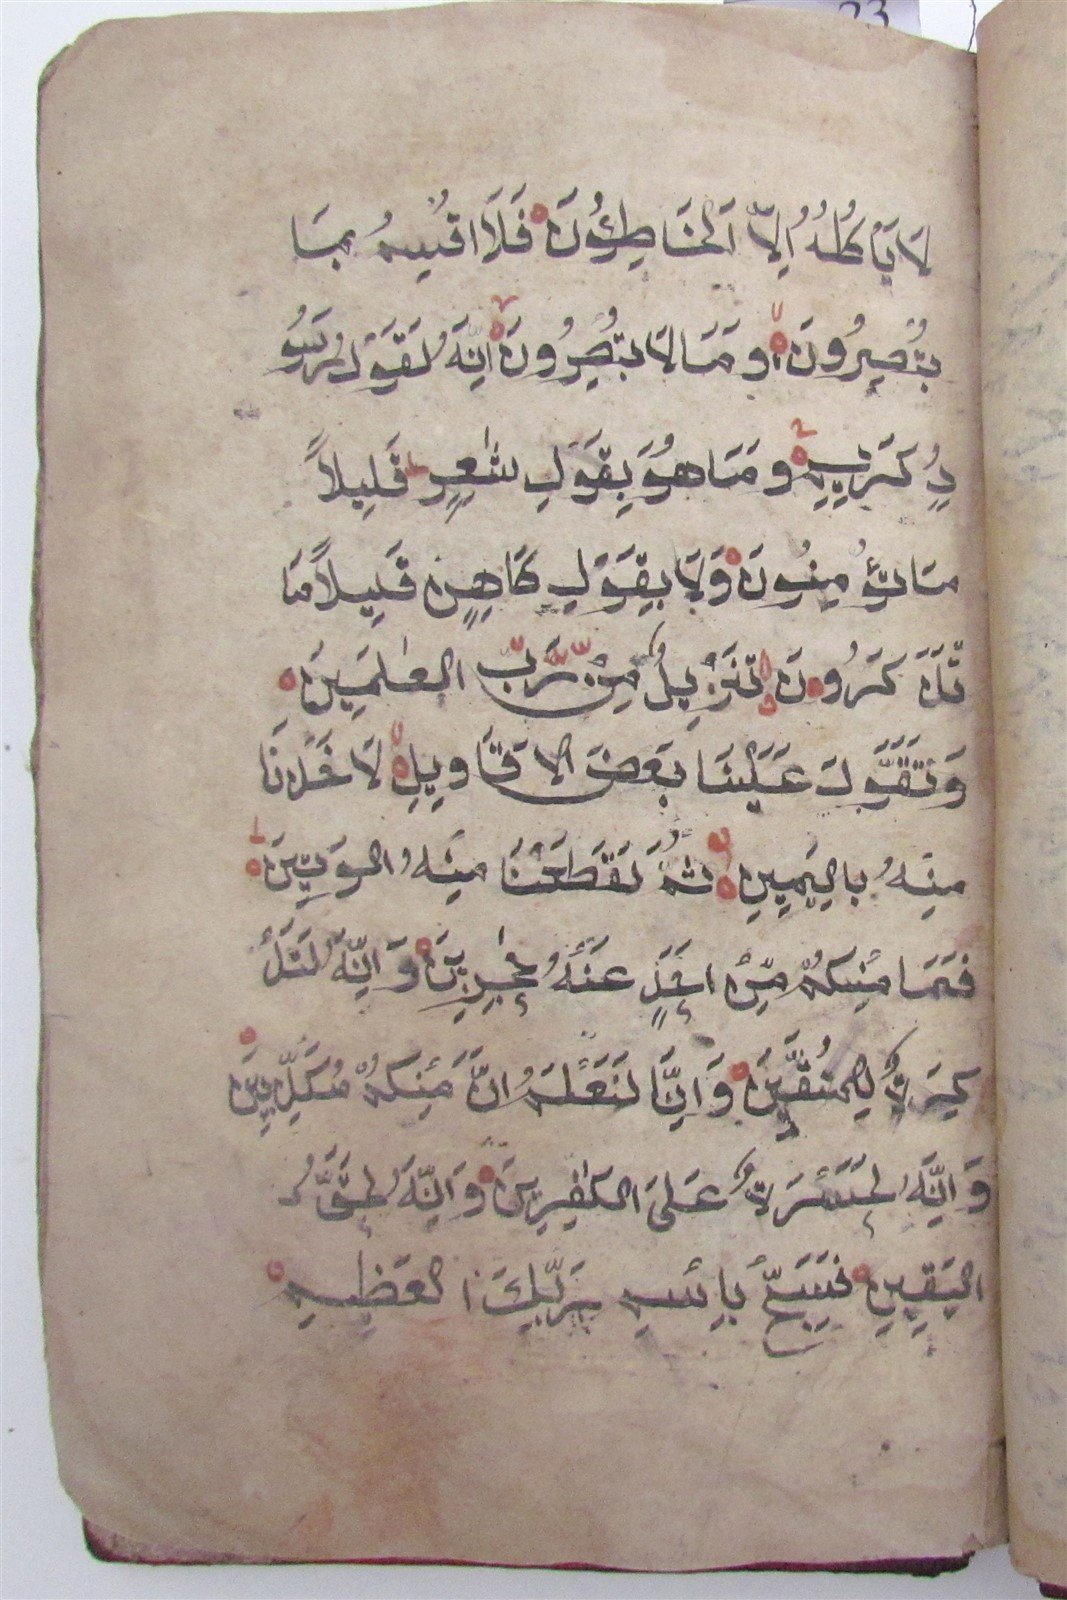 23
لَا يَأكُلُهُ اِلَّا الْخَاطِئُونَ فَلَا اُقْسِمُ بِمَا
تُبْصِرُونَ وَمَا لَا تُبْصِرُونَ اِنَّهُ لَقَوْلُ رَسُو
لٍ كَرِيمٍ وَمَا هُوَ بِقَوْلِ شٰعِرٍ قَلِيلاً
مَا تُؤْمِنُونَ وَلَا بِقَوْلِ كَاهِنٍ قَلِيلاً مَا
تَذَكَّرُونَ تَنْزِيلٌ مِنْ رَّبِّ الْعٰلَمِينَ
وَ تَقَوَّلَ عَلَيْنَا بَعْضَ الْاَقَاوِيلِ لَاَخَذْنَا
مِنْهُ بِالْيَمِينِ ثُمَّ لَقَطَعْنَا مِنْهُ الْوَتِينَ
فَمَا مِنْكُمْ مِّنْ اَحَدٍ عَنْهُ حٰجِزِينَ وَاِنَّهُ لَتَذْ
كِرَةٌ لِلْمُتَّقِينَ وَاِنَّا لَنَعْلَمُ اَنَّ مِنْكُمْ مُكَذِّبِينَ
وَاِنَّهُ لَحَسْرَةٌ عَلَى الْكٰفِرِينَ وَاِنَّهُ لَحَقُّ
الْيَقِينِ فَسَبِّحْ بِاسْمِ رَبِّكَ الْعَظِيمِ